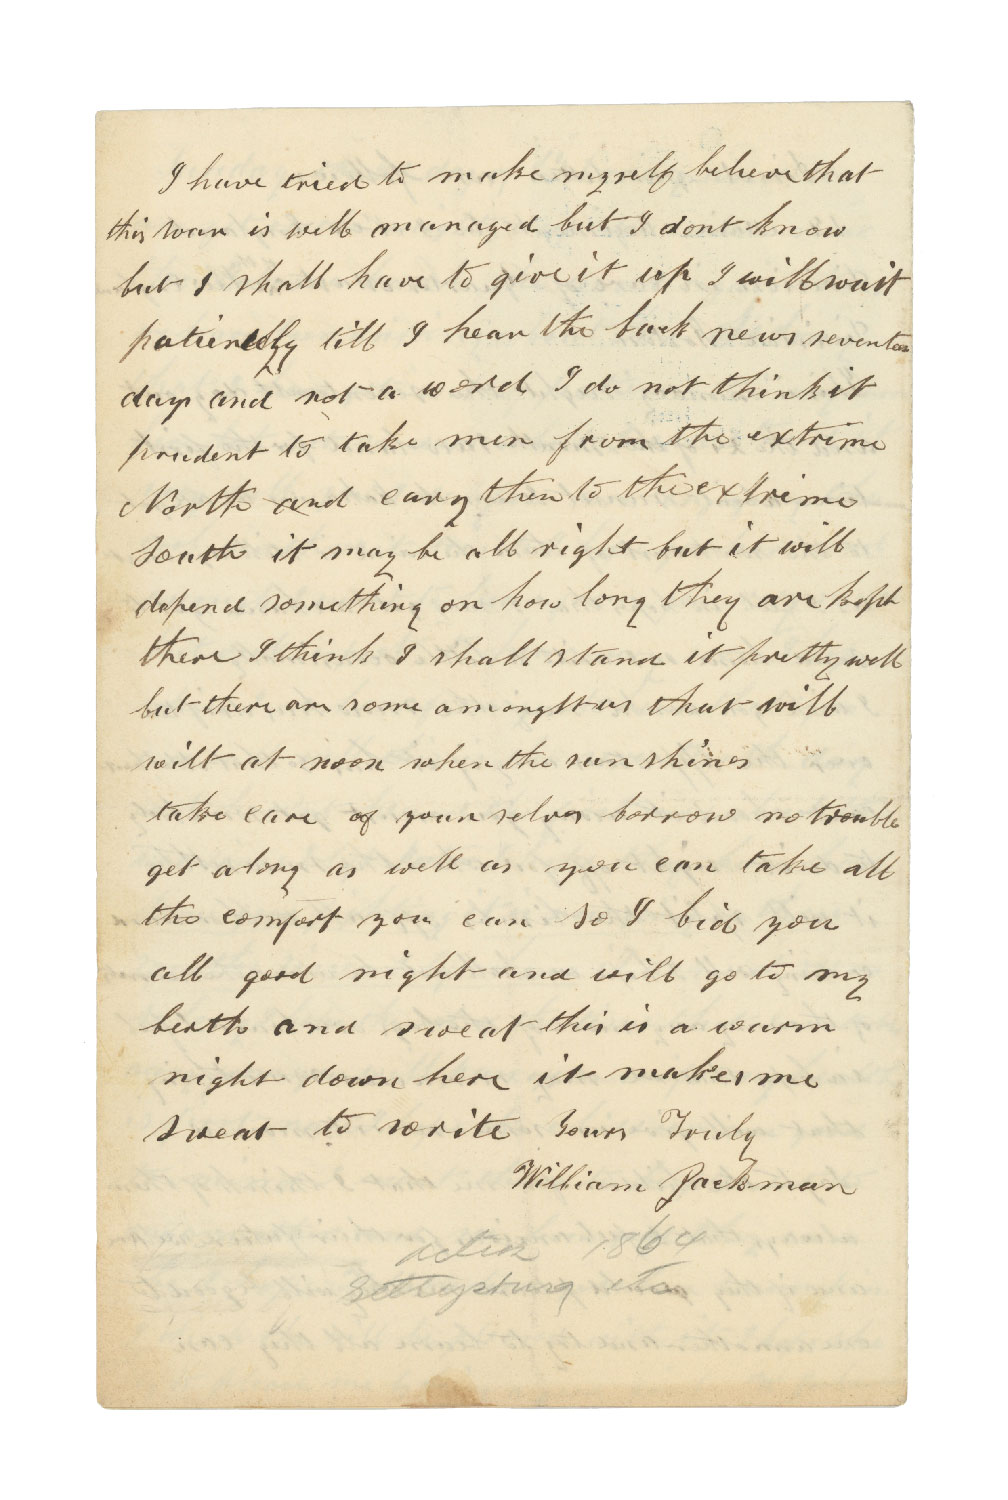 I have tried to make myself believe that
this war is well managed but I dont know
but I shall have to give it up I will wait
patiently till I hear the back news seventeen
days and not a word I do not think it
prudent to take men from the extrime
North and cary then to the extrime
South it may be all right but it will
depend something on how long they are kept
there I think I shall stand it pretty well
but there are some amongst us that will
wilt at noon when the sun shines
take care of your selves borrow no trouble
get along as well as you can take all
the comfort you can So I bid you
all good night and will go to my
berth and sweat this is a warm
night down here it makes me
sweat to write Yours Truly
William Jackman
1864
Gettysburg etc